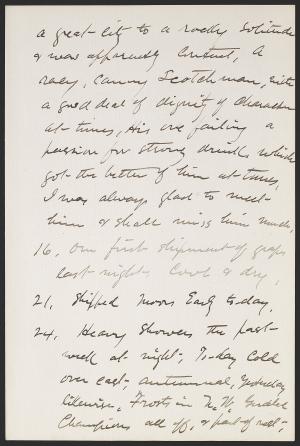 a great city to a rocky solitude
& was apparently content, A
racy, canny Scotchman, with
a good deal of dignity of character
at times, His one failing a
passion for strong drinks which
got the better of him at times,
I was always glad to meet
him & shall miss him much,
16, Our first shipment of graps
last night. Cool & dry,
21, Shipped Moors Early to-day,
24, Heavy Showers the past
week at night, To-day cold
over cast, autumnal, Yesterday
likewise, Frosts in N. Y.
Champions all off, & part of